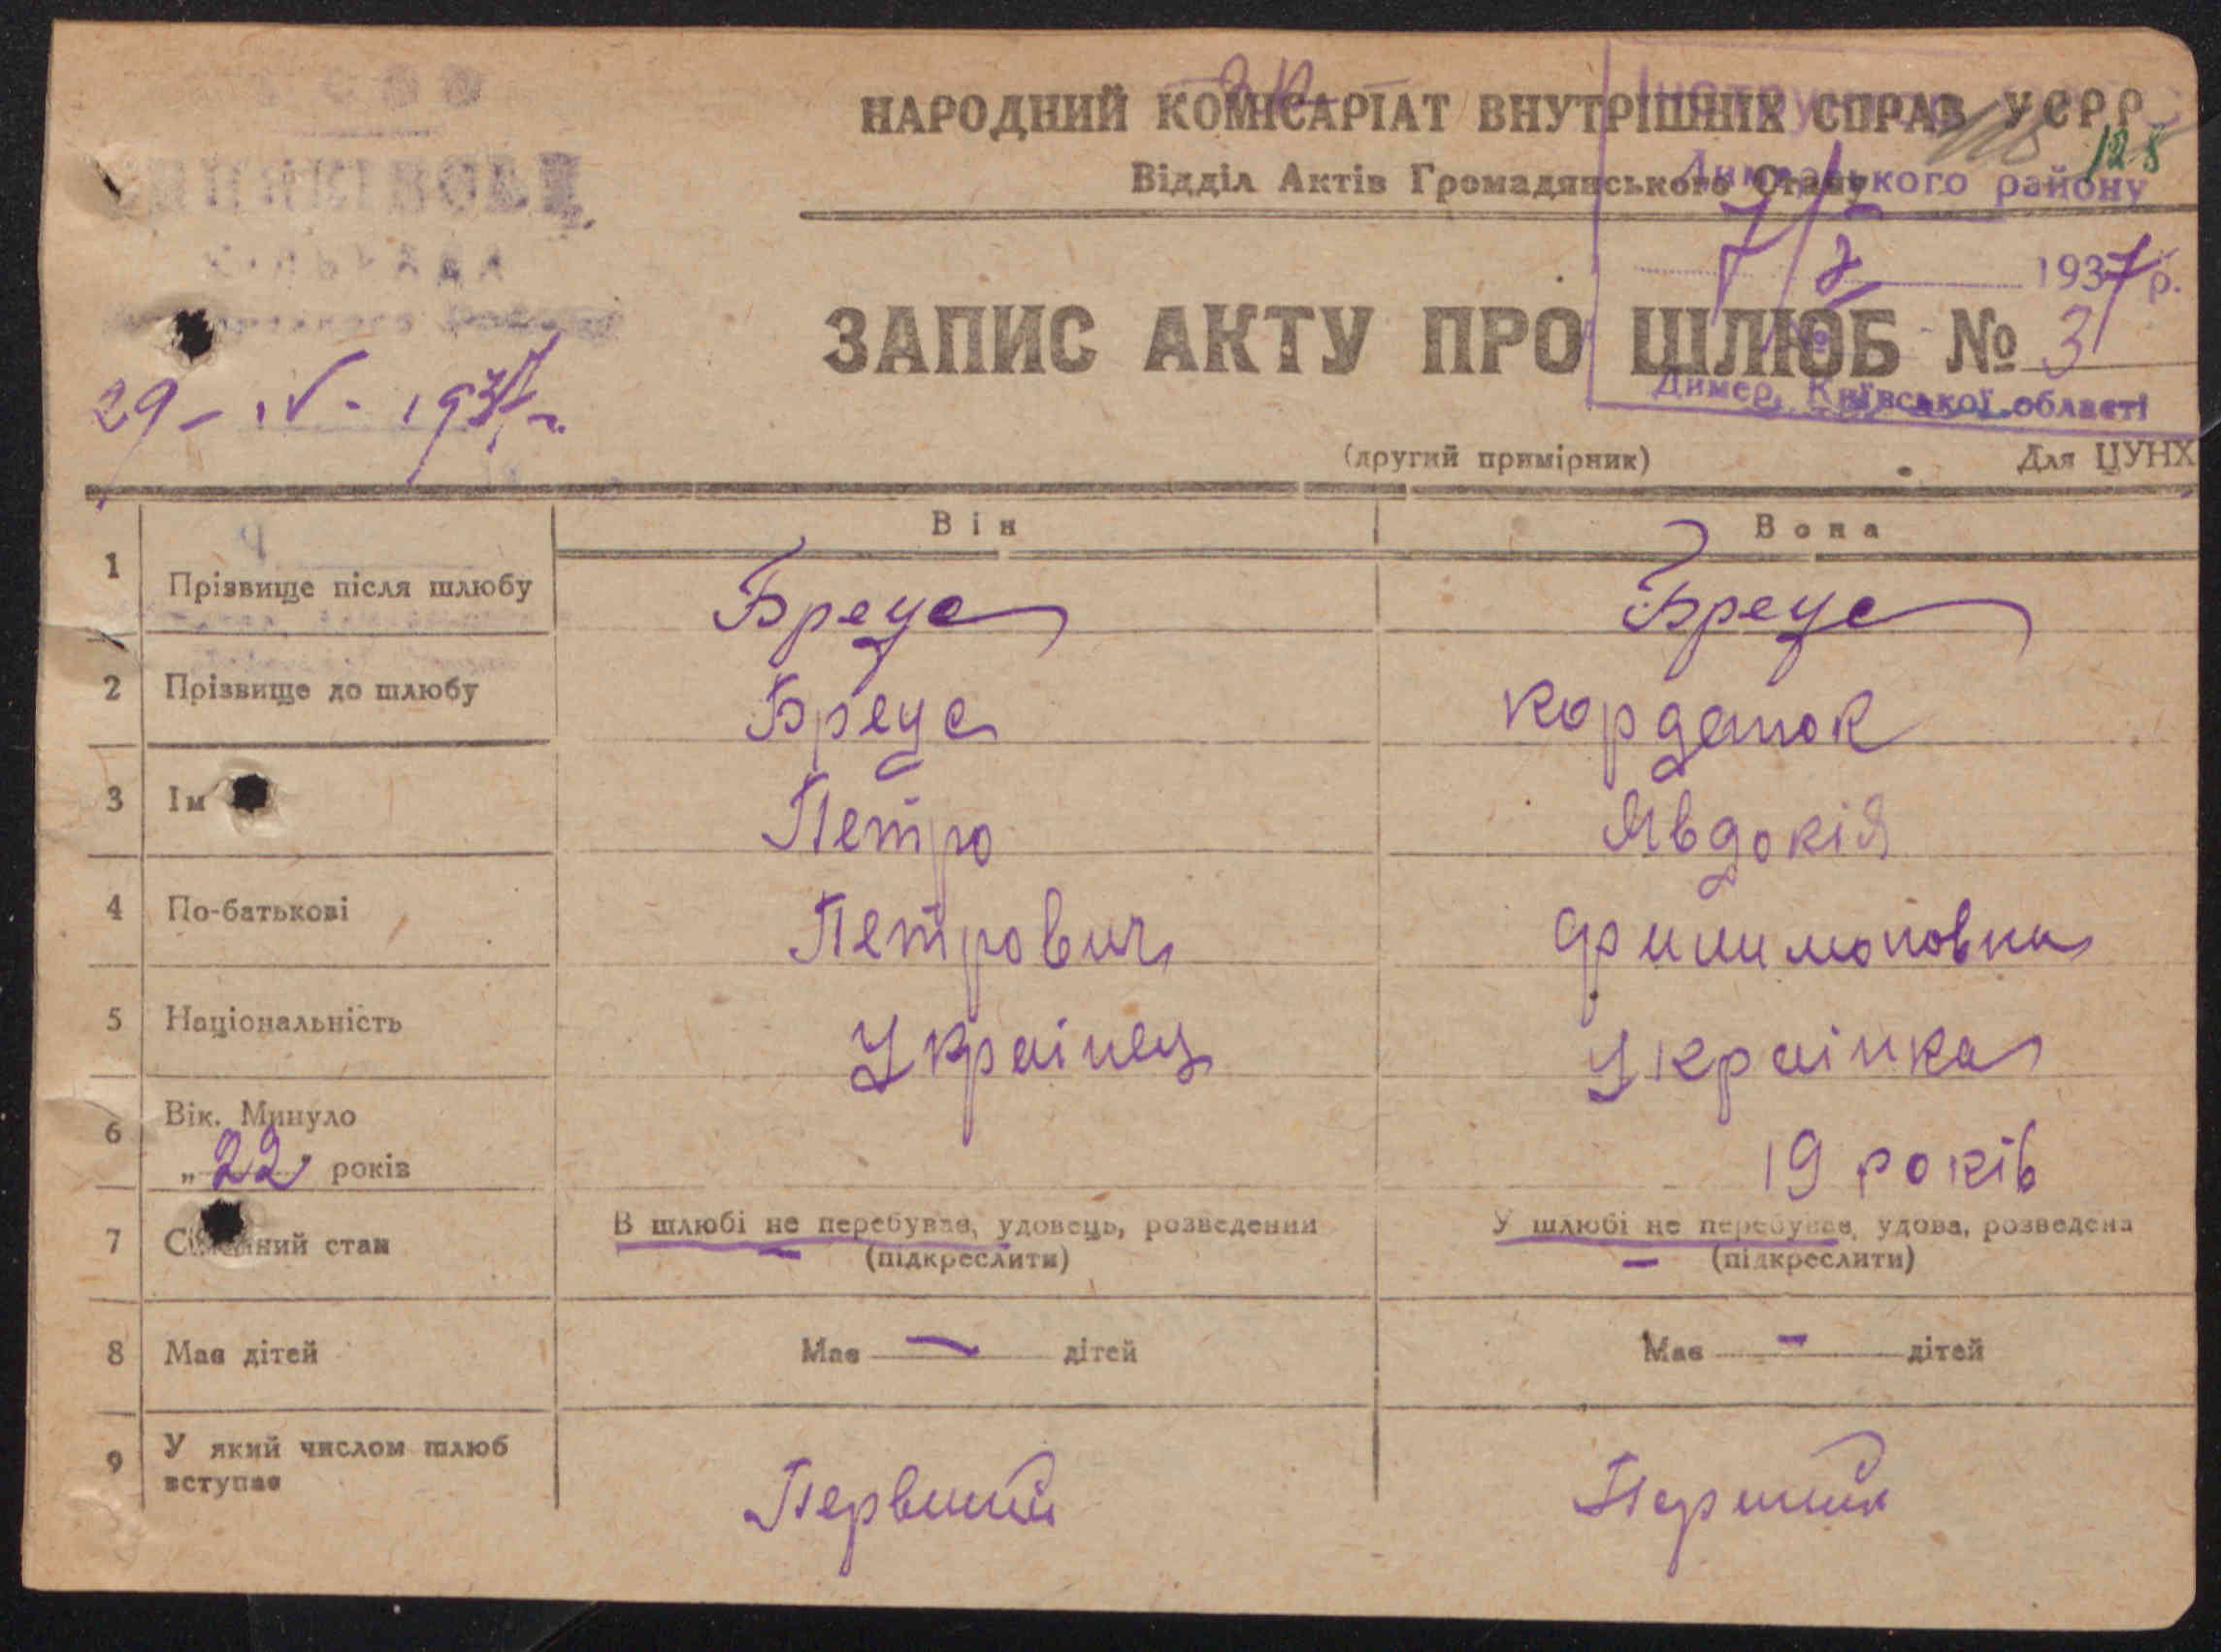 НАРОДНИЙ КОМІСАРІАТ ВНУТРІШНІХ СПРАВ УСРР
128
Відділ Актів Громадянського Стану
Димерського району
7/V 1937 р.
ЗАПИС АКТУ ПРО ШЛЮБ № 3
Димер, Київської області
29-IV-1937 р.
(другий примірник) Для ЦУНХ
Він Вона
1 Прізвище після шлюбу Бреус Бреус
2 Прізвище до шлюбу Бреус Кордашок
3 Ім Петро Явдокія
4 По-батькові Петрович Филимоновна
5 Національність Украінец Украінка
6 Вік. Минуло
„22" років 19 років
7 Сімейний стан В шлюбі не перебував, удовець, розведений У шлюбі не перебував, удова, розведена
(підкреслити) (підкреслити)
8 Має дітей Має — дітей Має - дітей
9 У який числом шлюб
вступає Первиий Перший